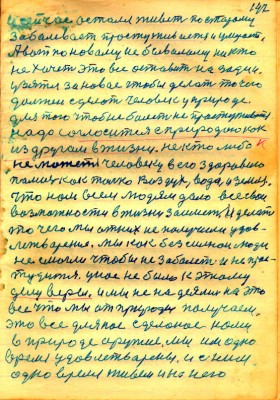 142
и сейчас остался живет по старому
Заболевает простуживается и умирает.
А вот по новому не бывалому никто
не хочет это все оставит на задии.
взятся за новое чтобы делат то его
должен сделат человек у природе.
для того чтобы не болет не простуживатся
надо согласится с природою как
из другам в жизни. некто либо к
не может человеку в его здоровию
помич как только воздух, вода, и земля.
Что нам всем людям дало все свои
возможности в жизни занятся. и делат
то чего мы от них не получили удов-
летварения. мы как бессилные люди
не смогли чтобы не заболет и не прос-
тудится. у нас не было к этому
делу веры. и мы не надеялис на это
все что мы от природы получаем.
это все для нас сделоное нами
в природе оружие, мы им одно
время удовлетварены, и с ним
одно время живем и на него